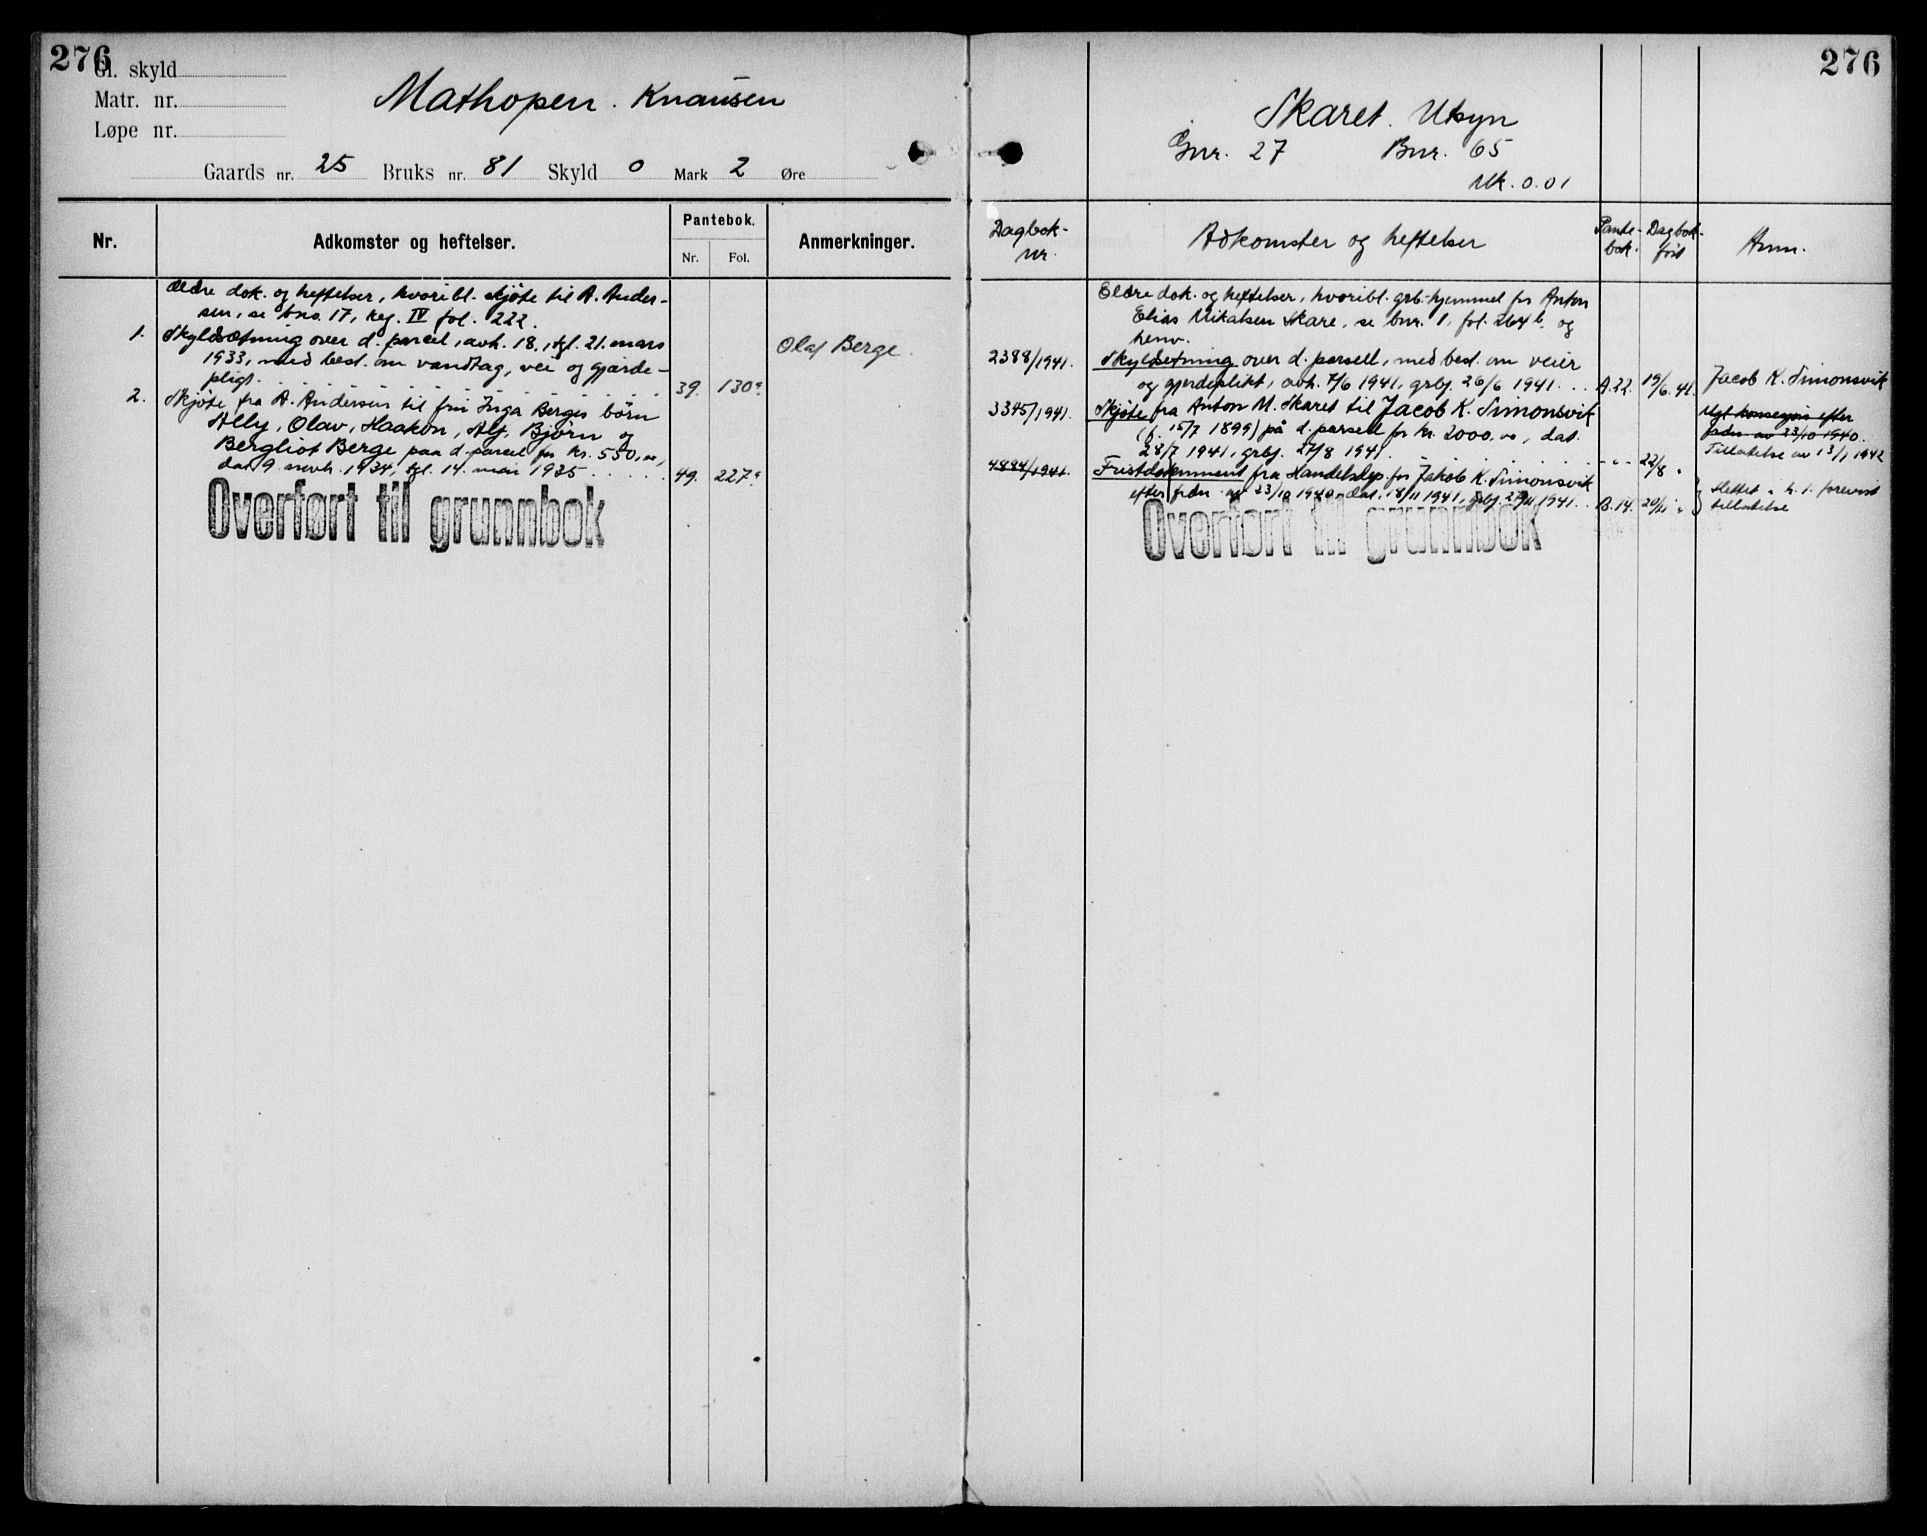 276
Gl. skyld
Matr. nr.
Løpe nr.
Mathopen. Knausen
Gaards nr. 25 Bruks nr. 81 Skyld 0 Mark 2 Øre
Nr.
Adkomster og heftelser.
Pantebok.
Nr. Fol.
Anmerkninger.
Ældre dok. og heftelser, hvoribl. skjøte til A. Ander-
sen, se bno. 17, reg. IV fol. 222.
1. Skyldsætning over d. parcel, avh. 18., tgl. 21. mars
1933, med best. om vandtag, vei og gjærde-
pligt. 39. 130a
Olaf Berge.
2. Skjøte fra A. Andersen til fru Inga Berges børn
Ally, Olav, Haakon, Alf, Bjørn og
Bergliot Berge paa d. parcel for kr. 550,00,
dat. 9. novb. 1934, tgl. 14. mai 1935 49. 227a
Overført til grunnbok
276
Skaret. Utsyn
Gnr. 27 Bnr. 65
Mk. 0.01
Dagbok-
nr.
Adkomster og heftelser
Pante-
bok.
Dagbok-
ført
Anm.
Eldre dok. og heftelser, hvoribl. grb.hjemmel for Anton
Elias Mikalsen Skare, se bnr. 1, fol. 264 b. og
henv.
2388/1941. Skyldsetning over d. parsell, med best. om veier
og gjerdeplikt, avh. 7/6 1941, grbj. 26/6 1941. A.22. 19/6.41. Jacob K. Simonsvik
3345/1941. Skjøte fra Anton M. Skaret til Jacob K. Simonsvik
(f. 15/7 1899) på d. parsell for kr. 2000.00, dat.
28/7 1941, grbj. 27/8 1941. -"- 22/8 "
Ugt konsesjon efter
frdn av 23/10 1940.
Tillatelse av 13/1 1942
4894/1941. Fristdokument fra Handelsdep. for Jakob K. Simonsvik
efter frdn. av 23/10 1940, dat. 18/11 1941, grbj. 27/11 1941. B.14. 20/11 "
Slettet i h. t. forevist
tillatelse
Overført til grunnbok